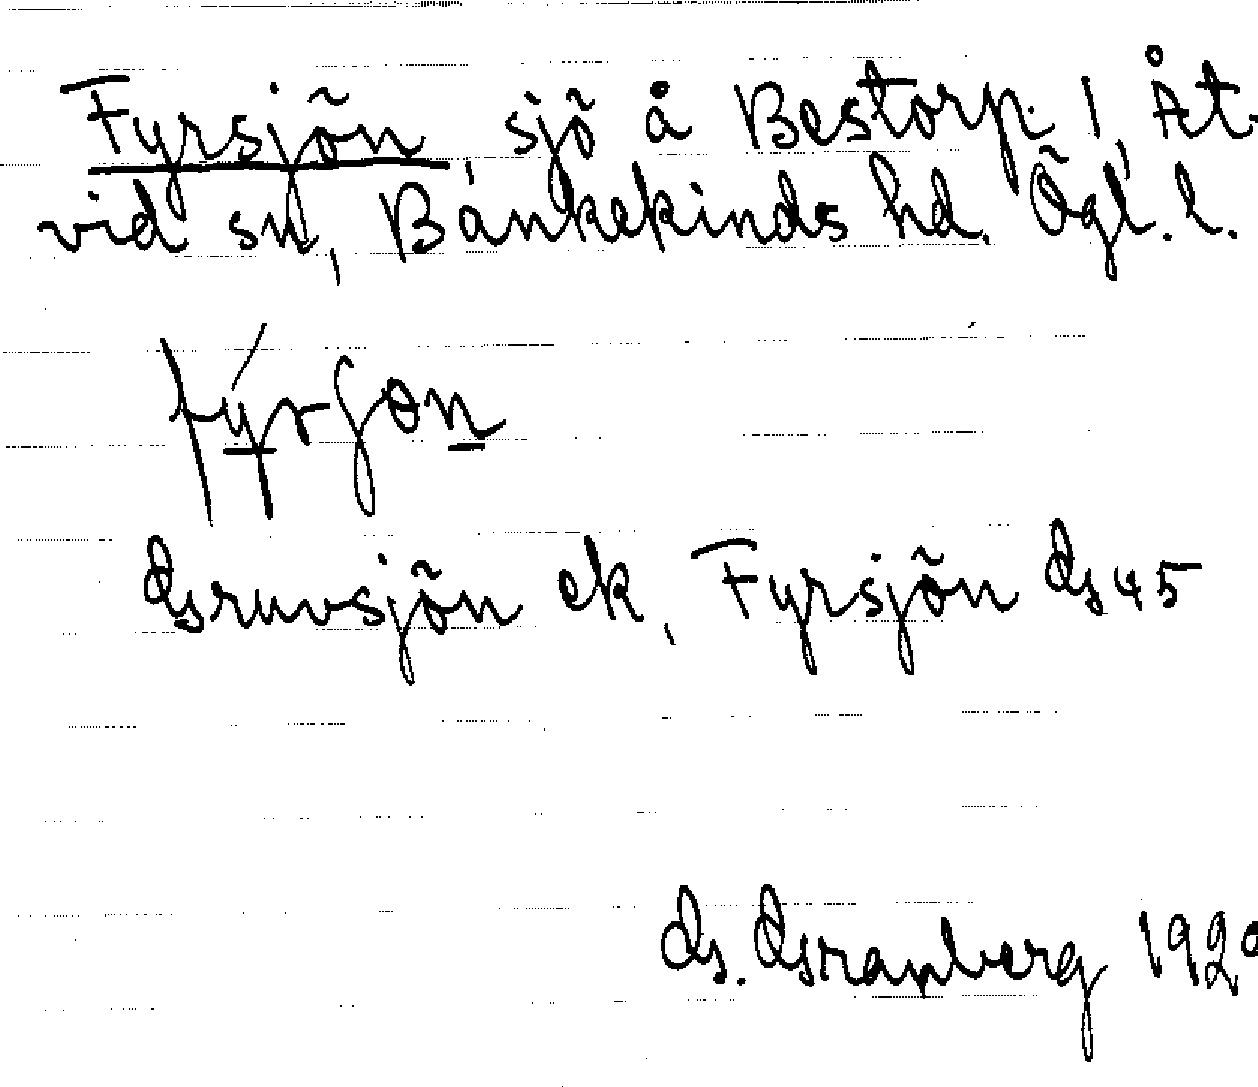 Fyrsjön sjö å Bestorp 1, Åt-
vid sn, Bankekinds hd. Ögl. l.
Gruvsjön ek, Fyrsjön G 45
G. Granberg 1929